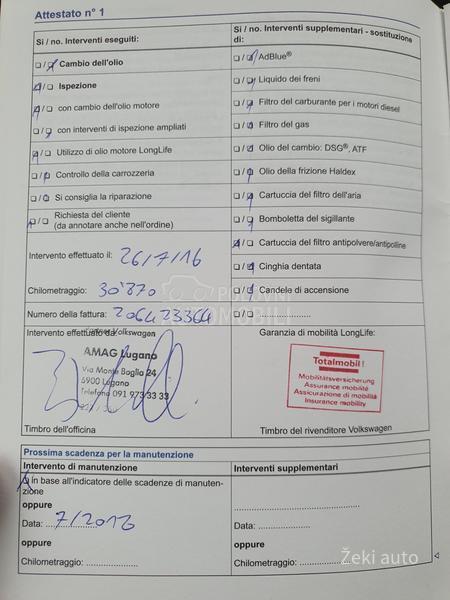 Attestato n° 1
Si / no. Interventi eseguiti:
❏ / ❏ Cambio dell'olio
❏ / ❏ Ispezione
❏ / ❏ con cambio dell'olio motore
❏ / ❏ con interventi di ispezione ampliati
❏ / ❏ Utilizzo di olio motore LongLife
❏ / ❏ Controllo della carrozzeria
❏ / ❏ Si consiglia la riparazione
❏ / ❏ Richiesta del cliente
(da annotare anche nell'ordine)
Intervento effettuato il: 26/7/16
Chilometraggio: 30'870
Numero della fattura: 206423364
Intervento effettuato da:
Partner Volkswagen
AMAG Lugano
Via Monte Boglia 24
6900 Lugano
Telefono 091 973 33 33
Timbro dell'officina
Si / no. Interventi supplementari - sostituzione
di:
❏ / ❏ AdBlue®
❏ / ❏ Liquido dei freni
❏ / ❏ Filtro del carburante per i motori diesel
❏ / ❏ Filtro del gas
❏ / ❏ Olio del cambio: DSG®, ATF
❏ / ❏ Olio della frizione Haldex
❏ / ❏ Cartuccia del filtro dell'aria
❏ / ❏ Bomboletta del sigillante
❏ / ❏ Cartuccia del filtro antipolvere/antipolline
❏ / ❏ Cinghia dentata
❏ / ❏ Candele di accensione
❏ / ❏ ....................
Garanzia di mobilità LongLife:
Totalmobil!
Mobilitätsversicherung
Assurance mobilité
Assicurazione di mobilità
Insurance mobility
Timbro del rivenditore Volkswagen
POLOVNI
AUTOMOBILI
Prossima scadenza per la manutenzione
Intervento di manutenzione
❏ in base all'indicatore delle scadenze di manuten-
zione
oppure
Data: ....................
oppure
Chilometraggio: ....................
Interventi supplementari
....................
oppure
Data: ....................
oppure
Chilometraggio: ....................
Žeki auto